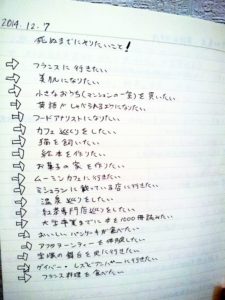 2014.12.7
死ぬまでにやりたいこと!
フランスに行きたい
美肌になりたい
小さなおうち(マンションの一室)を買いたい
英語がしゃべれるようになりたい
フードアナリストになりたい
カフェ巡りをしたい
猫を飼いたい
絵本を作りたい
お菓子の家を作りたい
ムーミンカフェに行きたい
ミシュランに載っている店に行きたい
温泉巡りをしたい
紅茶専門店巡りをしたい
大学卒業までに本を100冊読みたい
おいしいパンケーキが食べたい
アフタヌーンティーを体験したい
宝塚の舞台を見に行きたい
ゲイバー・レズビアンバーに行きたい
フランス料理を食べたい